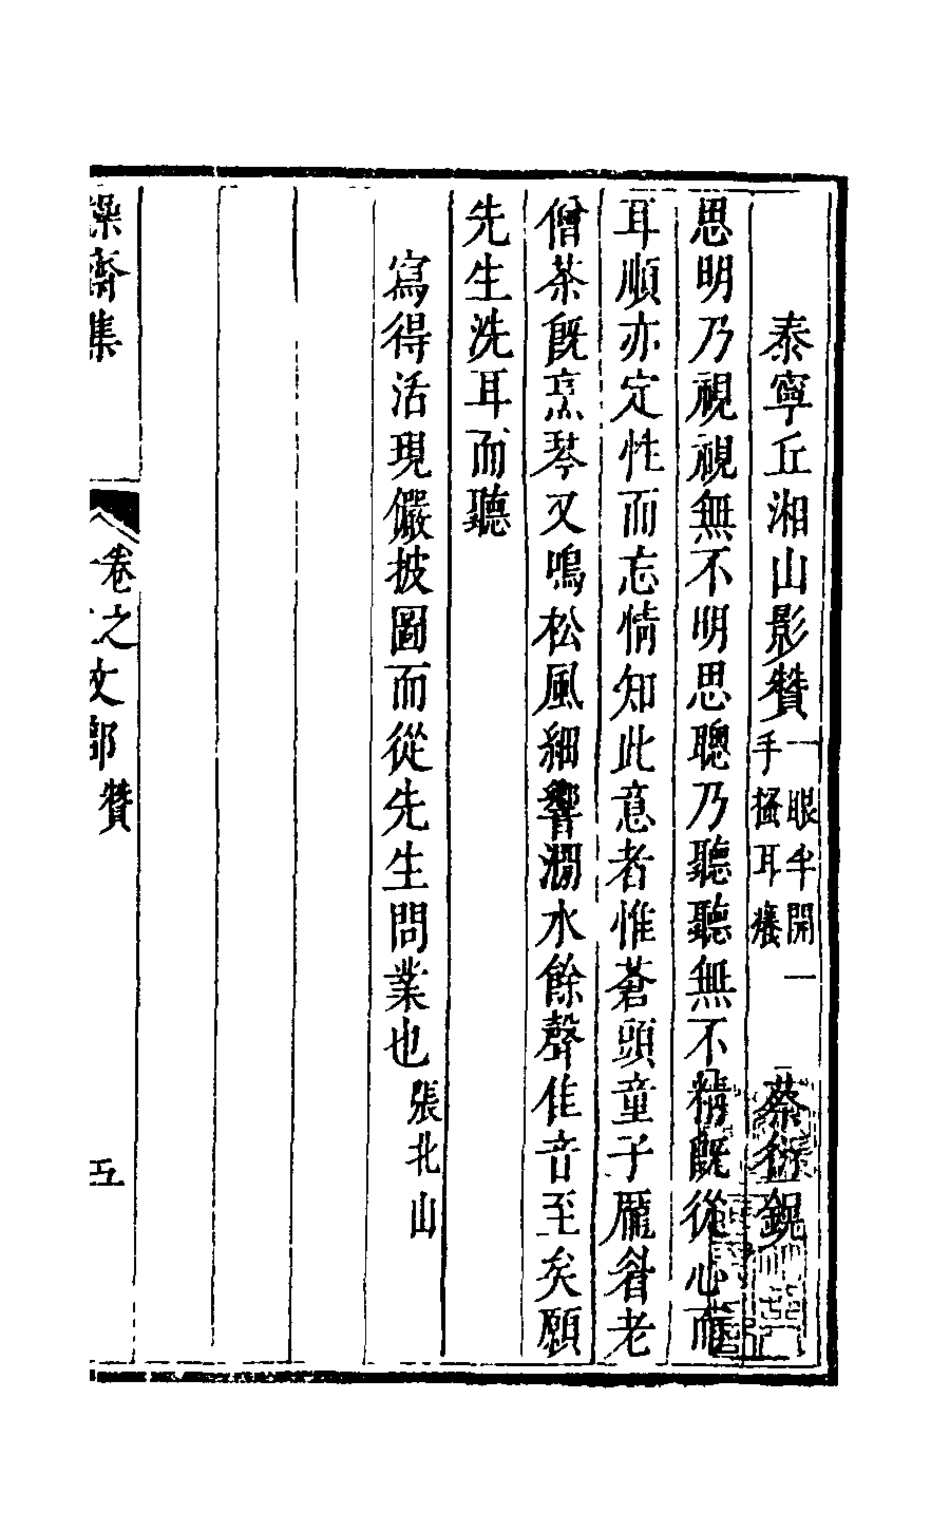 泰寧丘湘山影贊一眼半開一手搔耳癢 蔡衍鎤
思明乃視視無不明思聰乃聽聽無不精既從心而
耳順亦定性而忘情知此意者惟蒼頭童子龐眉老
僧茶既烹琴又鳴松風細響澗水餘聲佳音至矣願
先生洗耳而聽
寫得活現儼披圖而從先生問業也張北山
操齋集
卷之
文部 贊
五